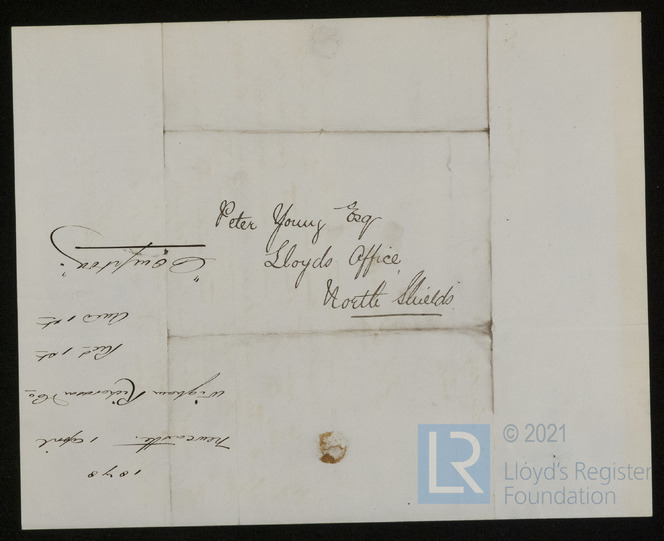 Peter Young Esq
Lloyds Office
North Shields
1878
Newcastle. 1 April
Wigham Richardson & Co
Recd 1 st
Ansd 1 st
LR
© 2021
Lloyd's Register
Foundation